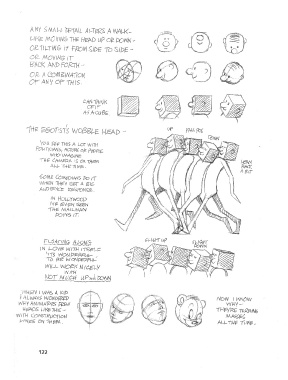 ANY SMALL DETAIL ALTERS A WALK -
LIKE MOVING THE HEAD UP OR DOWN -
OR TILTING IT FROM SIDE TO SIDE -
OR MOVING IT
BACK AND FORTH -
OR A COMBINATION
OF ANY OF THIS.
CAN THINK
OF IT
AS A CUBE
THE EGOTIST'S WOBBLE HEAD -
UP
PASS POS
DOWN
YOU SEE THIS A LOT WITH
POLITICIANS, ACTORS OR PEOPLE
WHO IMAGINE
THE CAMERA IS ON THEM
ALL THE TIME.
SOME COMEDIANS DO IT
WHEN THEY GET A BIG
AUDIENCE RESPONSE.
IN HOLLYWOOD
I'VE EVEN SEEN
THE MAILMAN
DOING IT.
BACK
A BIT
FLOATING ALONG
IN LOVE WITH ITSELF
'TIS WONDERFUL
TO BE WONDERFUL
WILL WORK NICELY
WITH
NOT MUCH UP and DOWN
SLIGHT UP
SLIGHT
DOWN
WHEN I WAS A KID
I ALWAYS WONDERED
WHY ANIMATORS DREW
HEADS LIKE THIS -
WITH CONSTRUCTION
LINES ON THEM.
NOW I KNOW
WHY -
THEY'RE TURNING
IMAGES
ALL THE TIME.
122